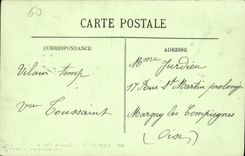 60
CARTE POSTALE
CORRESPONDANCE
ADRESSE
Vilain temp
vu Toussaint
Mme Jurdieu
17 Rue St Martin prolongé
Margny les Compiegnes
(Oise)